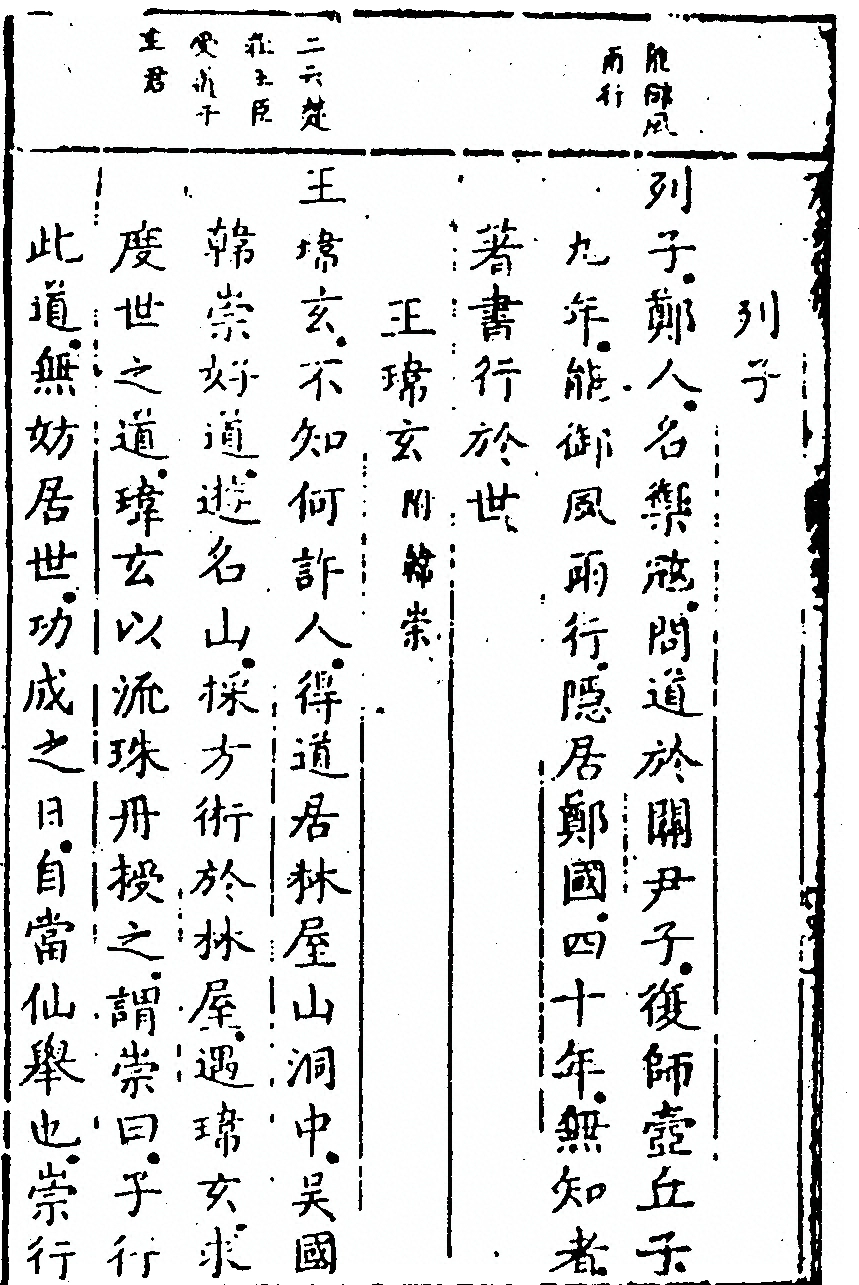 能御風
雨行
列子
列子鄭人名禦冦問道於關尹子復師壺丘子
九年能御風雨行隱居鄭國四十年無知者
著書行於世
二云楚
莊王臣
受道于
主君
王瑋玄附韓崇
王瑋玄不知何許人得道居林屋山洞中吳國
韓崇好道遊名山採方術於林屋遇瑋玄求
度世之道瑋玄以流珠丹授之謂崇曰子行
此道無妨居世功成之日自當仙舉也崇行